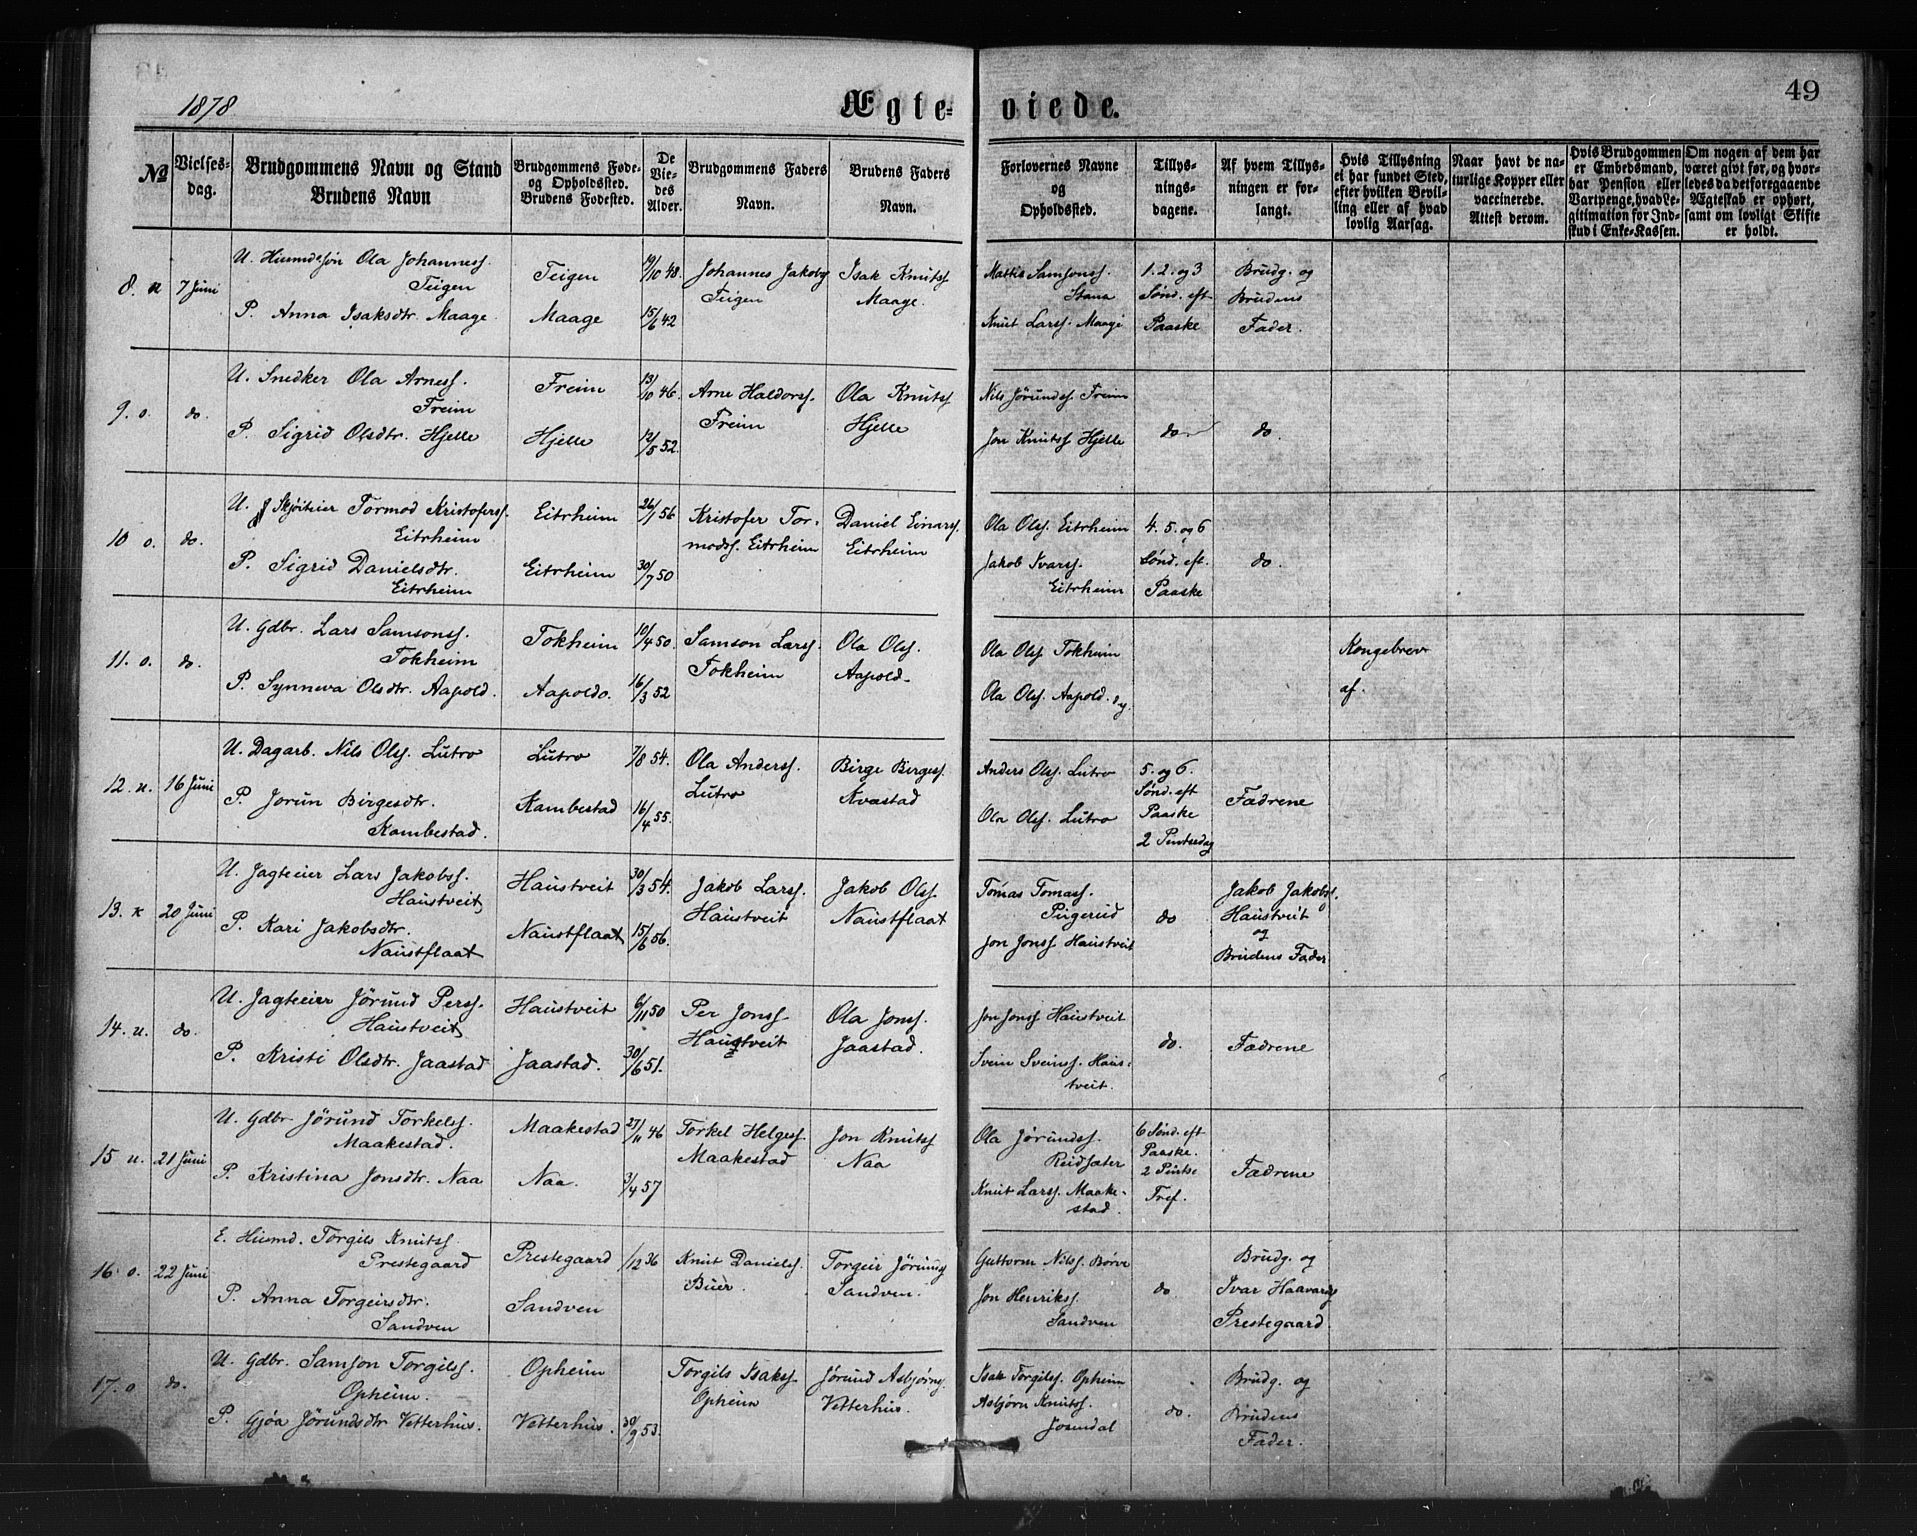 1878 Ægteviede. 49
№
Vielsesdag.
Brudgommens Navn og Stand
Brudens Navn
Brudgommens Føde- og Opholdssted.
Brudens Fødested.
De Viedes Alder.
Brudgommens Faders Navn.
Brudens Faders Navn.
Forlovernes Navne og Opholdssted.
Tillysningsdagene.
Af hvem Tillysningen er forlangt.
Hvis Tillysning ei har fundet Sted, efter hvilken Bevilling eller af hvad lovlig Aarsag.
Naar havt de naturlige Kopper eller vaccinerede. Attest derom.
Hvis Brudgommen er Embedsmand, har Pension eller Vartpenge, hvad Legitimation for Indskud i Enke-Kassen.
Om nogen af dem har været givt før, og hvorledes da det foregaaende Ægteskab er ophørt, samt om lovligt Skifte er holdt.
8. n 7 Juni
U. Husmdssøn Ola Johanness. Teigen
P. Anna Isaksdtr. Maage.
Teigen
Maage
19/10 48.
15/6 42
Johannes Jakobs Teigen
Isak Knuts. Maage.
Mattis Samsons. Stana
Knut Lars. Maage
1. 2. og 3 Sønd. eft Paaske
Brudg. og Brudens Fader.
9. o. do.
U. Snedker Ola Arness. Freim
P. Sigrid Olsdtr. Hjelle
Freim
Hjelle
13/10 46.
12/5 52.
Arne Haldors. Freim
Ola Knuts. Hjelle
Nils Jørunds. Freim
Jon Knuts. Hjelle
do
do.
10 o. do.
U. Skjøiteier Tormod Kristofers. Eitrheim
P. Sigrid Danielsdtr. Eitrheim
Eitrheim
Eitrheim
26/1 56
30/7 50
Kristofer Tormods. Eitrheim
Daniel Einars. Eitrheim
Ola Ols. Eitrheim
Jakob Ivars. Eitrheim
4. 5. og 6 Sønd. eft. Paaske
do.
11. o. do.
U. Gdbr. Lars Samsons. Tokheim
P. Synneva Olsdtr. Aapold.
Tokheim
Aapoldo.
10/4 50.
16/3 52
Samson Lars. Tokheim
Ola Ols. Aapold.
Ola Ols. Tokheim
Ola Ols. Aapold. d.y.
Kongebrev af.
12. n. 16 Juni
U. Dagarb. Nils Ols. Lutro
P. Jorun Birgesdtr. Kambestad.
Lutro
Kambestad
7/8 54.
16/4 55.
Ola Anders. Lutro
Birge Birges. Kvestad
Anders Ols. Lutro
Ola Ols. Lutro
5. og 6. Sønd. eft Paaske 2 Pintsedag
Fædrene
13. k 20 Juni
U. Jagteier Lars Jakobs. Haustveit
P. Kari Jakobsdtr. Naustflaat
Haustveit
Naustflaat
30/3 54.
15/6 56.
Jakob Lars. Haustveit
Jakob Ols. Naustflaat
Tomas Tomas. Pugerud
Jon Jons. Haustveit
do
Jakob Jakobs. Haustveit og Brudens Fader
14. n. do.
U. Jagteeier Jørund Pers. Haustveit
P. Kristi Olsdtr. Jaastad
Haustveit
Jaastad.
6/11 50
30/6 51.
Per Jons. Haustveit
Ola Jons. Jaastad.
Jon Jons. Haustveit
Svein Sveins. Haustveit.
do.
Fædrene
15 u. 21 Juni
U. Gdbr Jørund Torkels. Maakestad.
P. Kristina Jonsdtr. Naa
Maakestad
Naa.
27/11 46
3/4 57
Torkel Helges. Maakestad
Jon Knuts. Naa
Ola Jørunds. Reidsæter
Knut Lars. Maakestad.
6 Sønd. eft Paaske. 2 Pintse Tref.
Fædrene
16 o. 22 Juni
E. Husmd. Torgils Knuts. Prestegaard
P. Anna Torgeirsdtr. Sandven
Prestegaard
Sandven
/12 36
Knut Daniels. Buer.
Torgeir Jørunds Sandven.
Guttorm Nils. Børve
Jon Henriks. Sandven
do.
Brudg. og Ivar Haavards Prestegaard.
17. o do.
U. Gdbr. Samson Torgils. Opheim.
P. Gjøa Jørundsdtr Vetterhus.
Opheim
Vetterhus.
30/9 53.
Torgils Isaks. Opheim
Jørund Asbjørns. Vetterhus.
Isak Torgils. Opheim
Asbjørn Knuts. Josendal
do.
Brudg. og Brudens Fader.